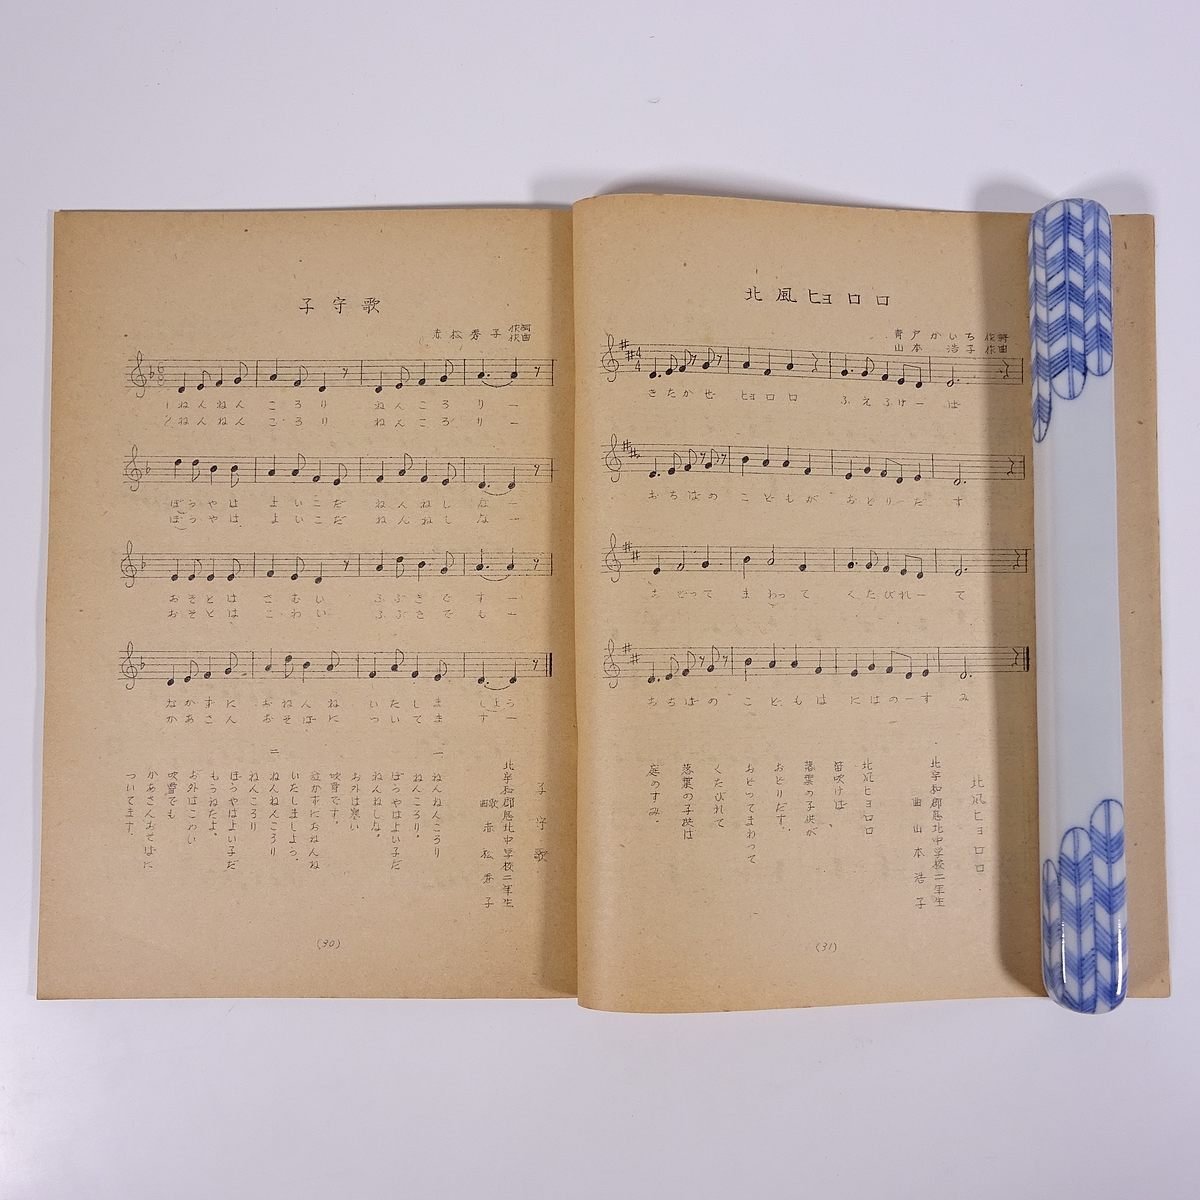 子守歌
赤松秀子 作詞 作曲
1 ねんねん ころり ねんころ りー
2 ねんねん ころり ねんころ りー
ぼうやは よいこだ ねんねし なー
ぼうやは よいこだ ねんねし なー
おそとは さむい ふぶきで すー
おそとは こわい ふぶきで もー
なかずに おねんね いたしま しょう
かあさん おそばに いってま すー
子守歌
北宇和郡愛北中学校二年生
歌曲 赤松秀子
一
ねんねんころり
ねんころり。
ぼうやはよい子だ
ねんねしな。
お外は寒い
吹雪です。
泣かずにおねんね
いたしましょう。
二
ねんねんころり
ねんころり
ぼうやはよい子だ
もうねたよ。
お外はこわい
吹雪でも
かあさんおそばに
ついてます。
(30)
北風ヒョロロ
青戸かいち 作詞
山本浩子 作曲
きたかぜ ヒョロロ ふえふけー ば
おちばの こどもが おどりーだ す
おどって まわって くたびれー て
おちばの こどもは にはのーす み
北風ヒョロロ
北宇和郡愛北中学校二年生
曲 山本浩子
北風ヒョロロ
笛吹けば、
落葉の子供が
おどりだす。
おどってまわって
くたびれて
落葉の子供は
庭のすみ。
(31)